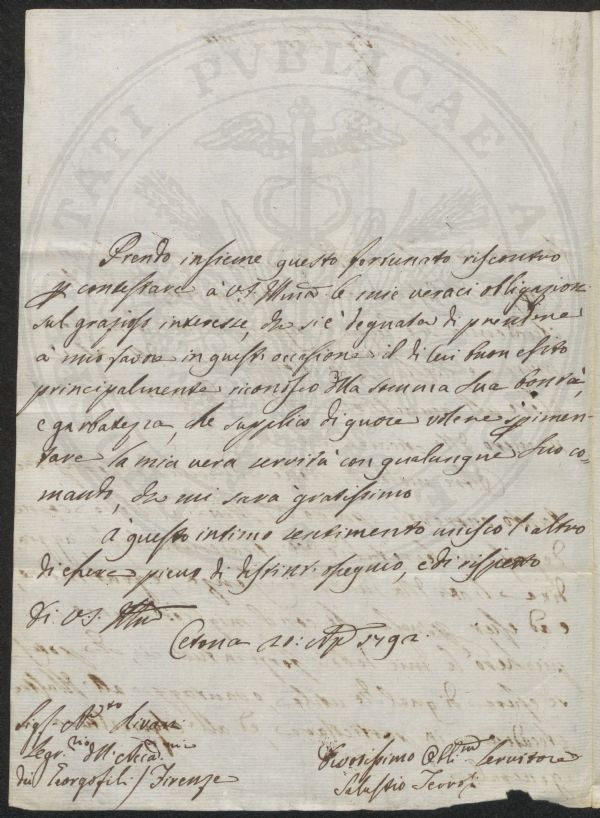 PUBLICAE
Prendo insieme questo fortunato riscontro
p contestare à VS. Illma le mie veraci obligazioni
sul grazioso interesse, che si è degnata di prendere
à mio favore in questa occasione il di cui buon esito
principalmente riconosco dlla somma sua bontà,
e garbatezza, che supplico di cuore volere sperimen-
tare la mia vera servitù con qualunque suo co-
mando, che mi sarà gratissimo
A questo intimo sentimento unisco l'altro
di essere pieno di distint. ossequio, e di rispetto
di VS. Illma
Cetona 20: Ap 1792.
Sigr.
Segr.rio dll' Accad.mia
dei Georgofili / Firenze
Devotissimo Obb.mo Servitore
Salustio